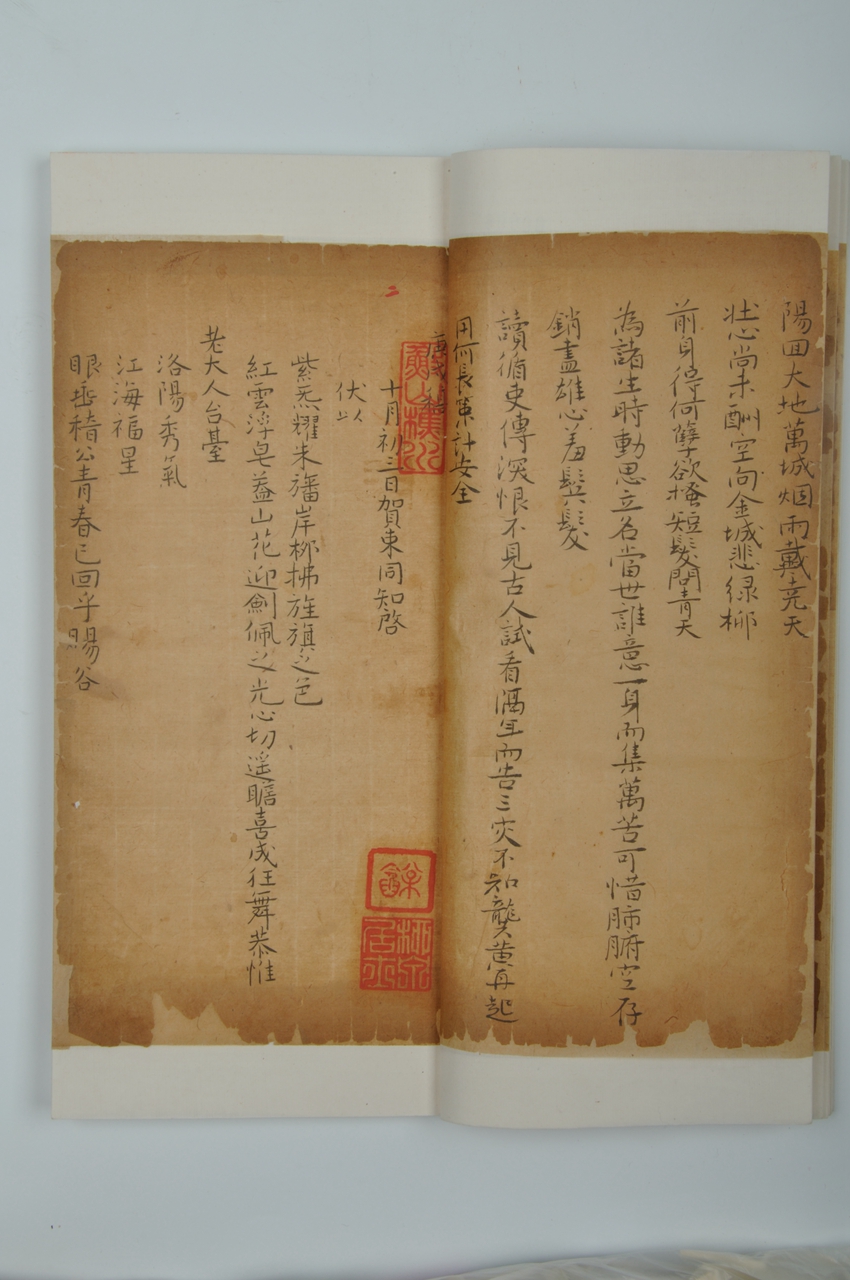 陽回大地萬城烟雨戴堯天
壯心尚未酬空向金城悲綠柳
前身得何孽欲搔短髮問青天
為諸生時動思立名當世誰意一身而集萬苦可惜肺腑空存
銷盡雄心羞鬂髮
讀循吏傳深恨不見古人試看滿年而告三灾不知龔黃再起
用何長策計安全
庚戌
十月初三日賀東同知啓
伏以
紫炁耀朱旛岸柳拂旌旗之色
紅雲浮皂葢山花迎劍佩之光心切遥瞻喜成狂舞恭惟
老大人台臺
洛陽秀氣
江海福星
眼垂稽公青春已回乎暘谷
餘
柳泉
居士